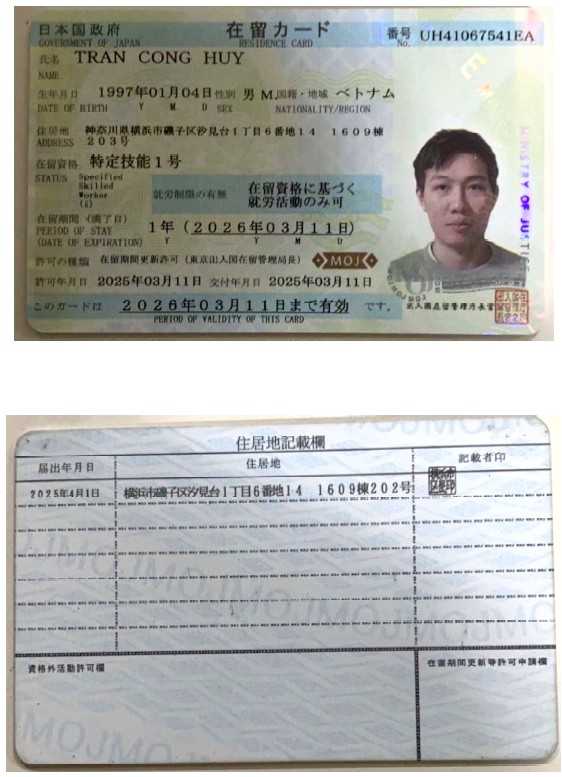 日本国政府 在留カード 番号 UH41067541EA
GOVERNMENT OF JAPAN RESIDENCE CARD No.
氏名 TRAN CONG HUY
NAME
生年月日 1997年01月04日 性別 男 M. 国籍・地域 ベトナム
DATE OF BIRTH Y M D SEX NATIONALITY/REGION
住居地 神奈川県横浜市磯子区汐見台1丁目6番地14 1609棟
ADDRESS 203号
在留資格 特定技能1号
STATUS Specified
Skilled
Worker
(i)
就労制限の有無 在留資格に基づく
就労活動のみ可
在留期間(満了日) 1年(2026年03月11日)
PERIOD OF STAY
(DATE OF EXPIRATION) Y Y M D
許可の種類 在留期間更新許可(東京出入国在留管理局長) MOJ
許可年月日 2025年03月11日 交付年月日 2025年03月11日
このカードは 2026年03月11日まで有効 です。
PERIOD OF VALIDITY OF THIS CARD
MINISTRY OF JUSTICE
住居地記載欄
届出年月日 住居地 記載者印
2025年4月1日 横浜市磯子区汐見台1丁目6番地14 1609棟202号
資格外活動許可欄 在留期間更新等許可申請欄
MOJ